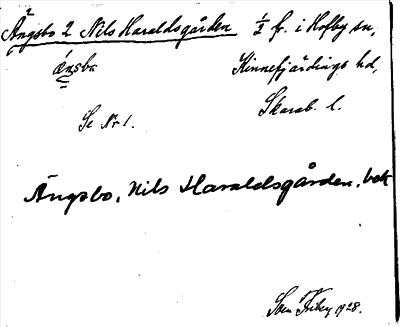 Ängsbo 2 Nils Haraldsgården 1/2 fr. i Hofby sn,
ǽŋsbω Kinnefjärdings hd,
Skarab. l.
Se Nr 1.
Ängsbo, Nils Haraldsgården, bet
Sven Friberg 1928.